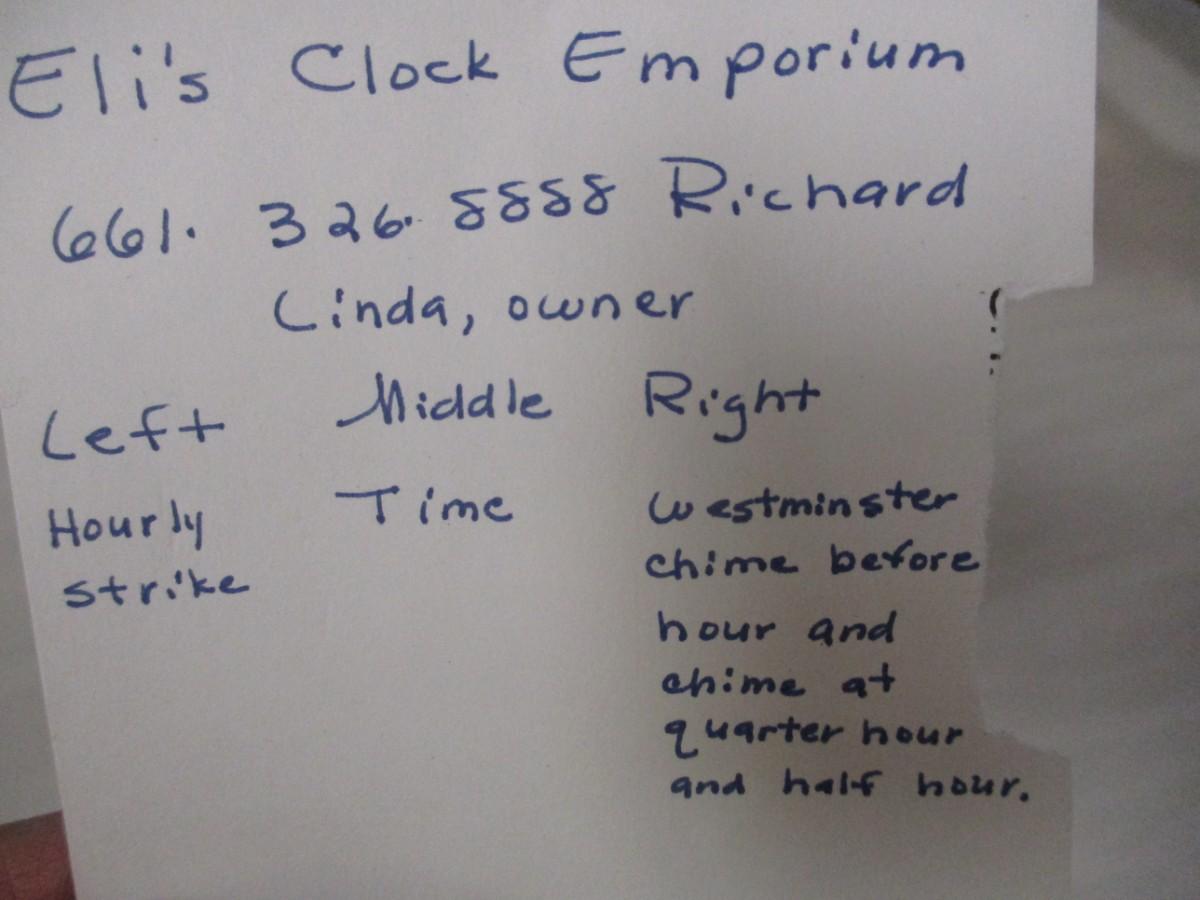 Eli's Clock Emporium
661. 326. 8888 Richard
Linda, owner
Left Middle Right
Hourly Time Westminster
strike chime before
hour and
chime at
quarter hour
and half hour.